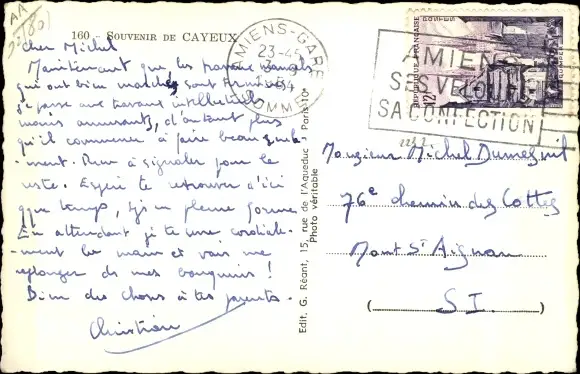 160 - SOUVENIR DE CAYEUX
Cher Michel
Maintenant que les travaux manuels
qui ont bien marché, sont terminés
je passe aux travaux intellectuels
moins amusants, d'autant plus
qu'il commence à faire beau
-ment. Rien à signaler pour le
reste. Espère te retrouver d'ici
quelque temps, en pleine forme
En attendant je te serre cordiale-
-ment la main et vais me
replonger ds mes bouquins !
Bien des choses à tes parents.
Christian
Edit. G. Réant, 15, rue de l'Aqueduc - Paris-10e
Photo véritable
AMIENS-GARE
23-45
SOMME
AMIENS
SES VELOURS
SA CONFECTION
REPUBLIQUE FRANÇAISE
POSTES
12F
Monsieur Michel
76e chemin des Cottes
Mont St Aignan
(S.I.)